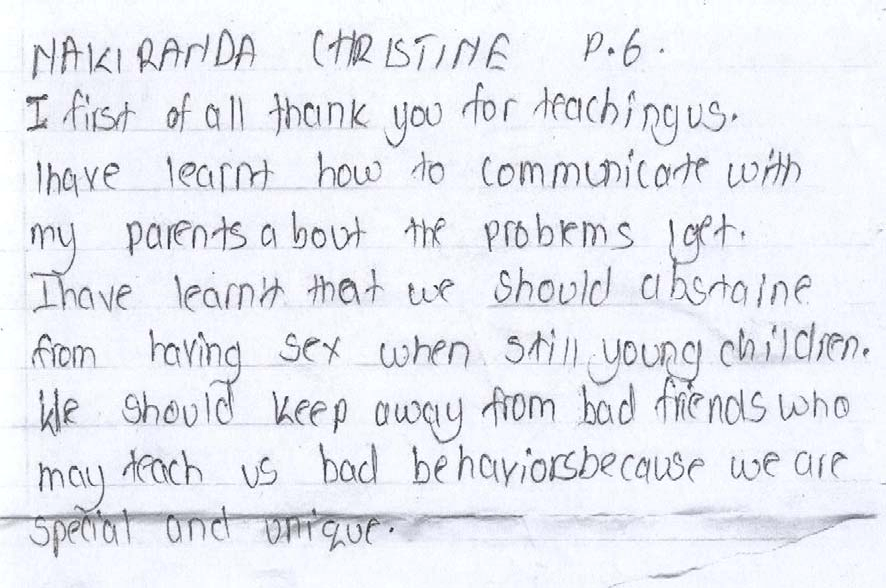 NAKIRANDA CHRISTINE P.6.
I first of all thank you for teaching us.
I have learnt how to communicate with
my parents about the problems I get.
I have learnt that we should abstaine
from having sex when still young children.
We should keep away from bad friends who
may teach us bad behaviors because we are
special and unique.